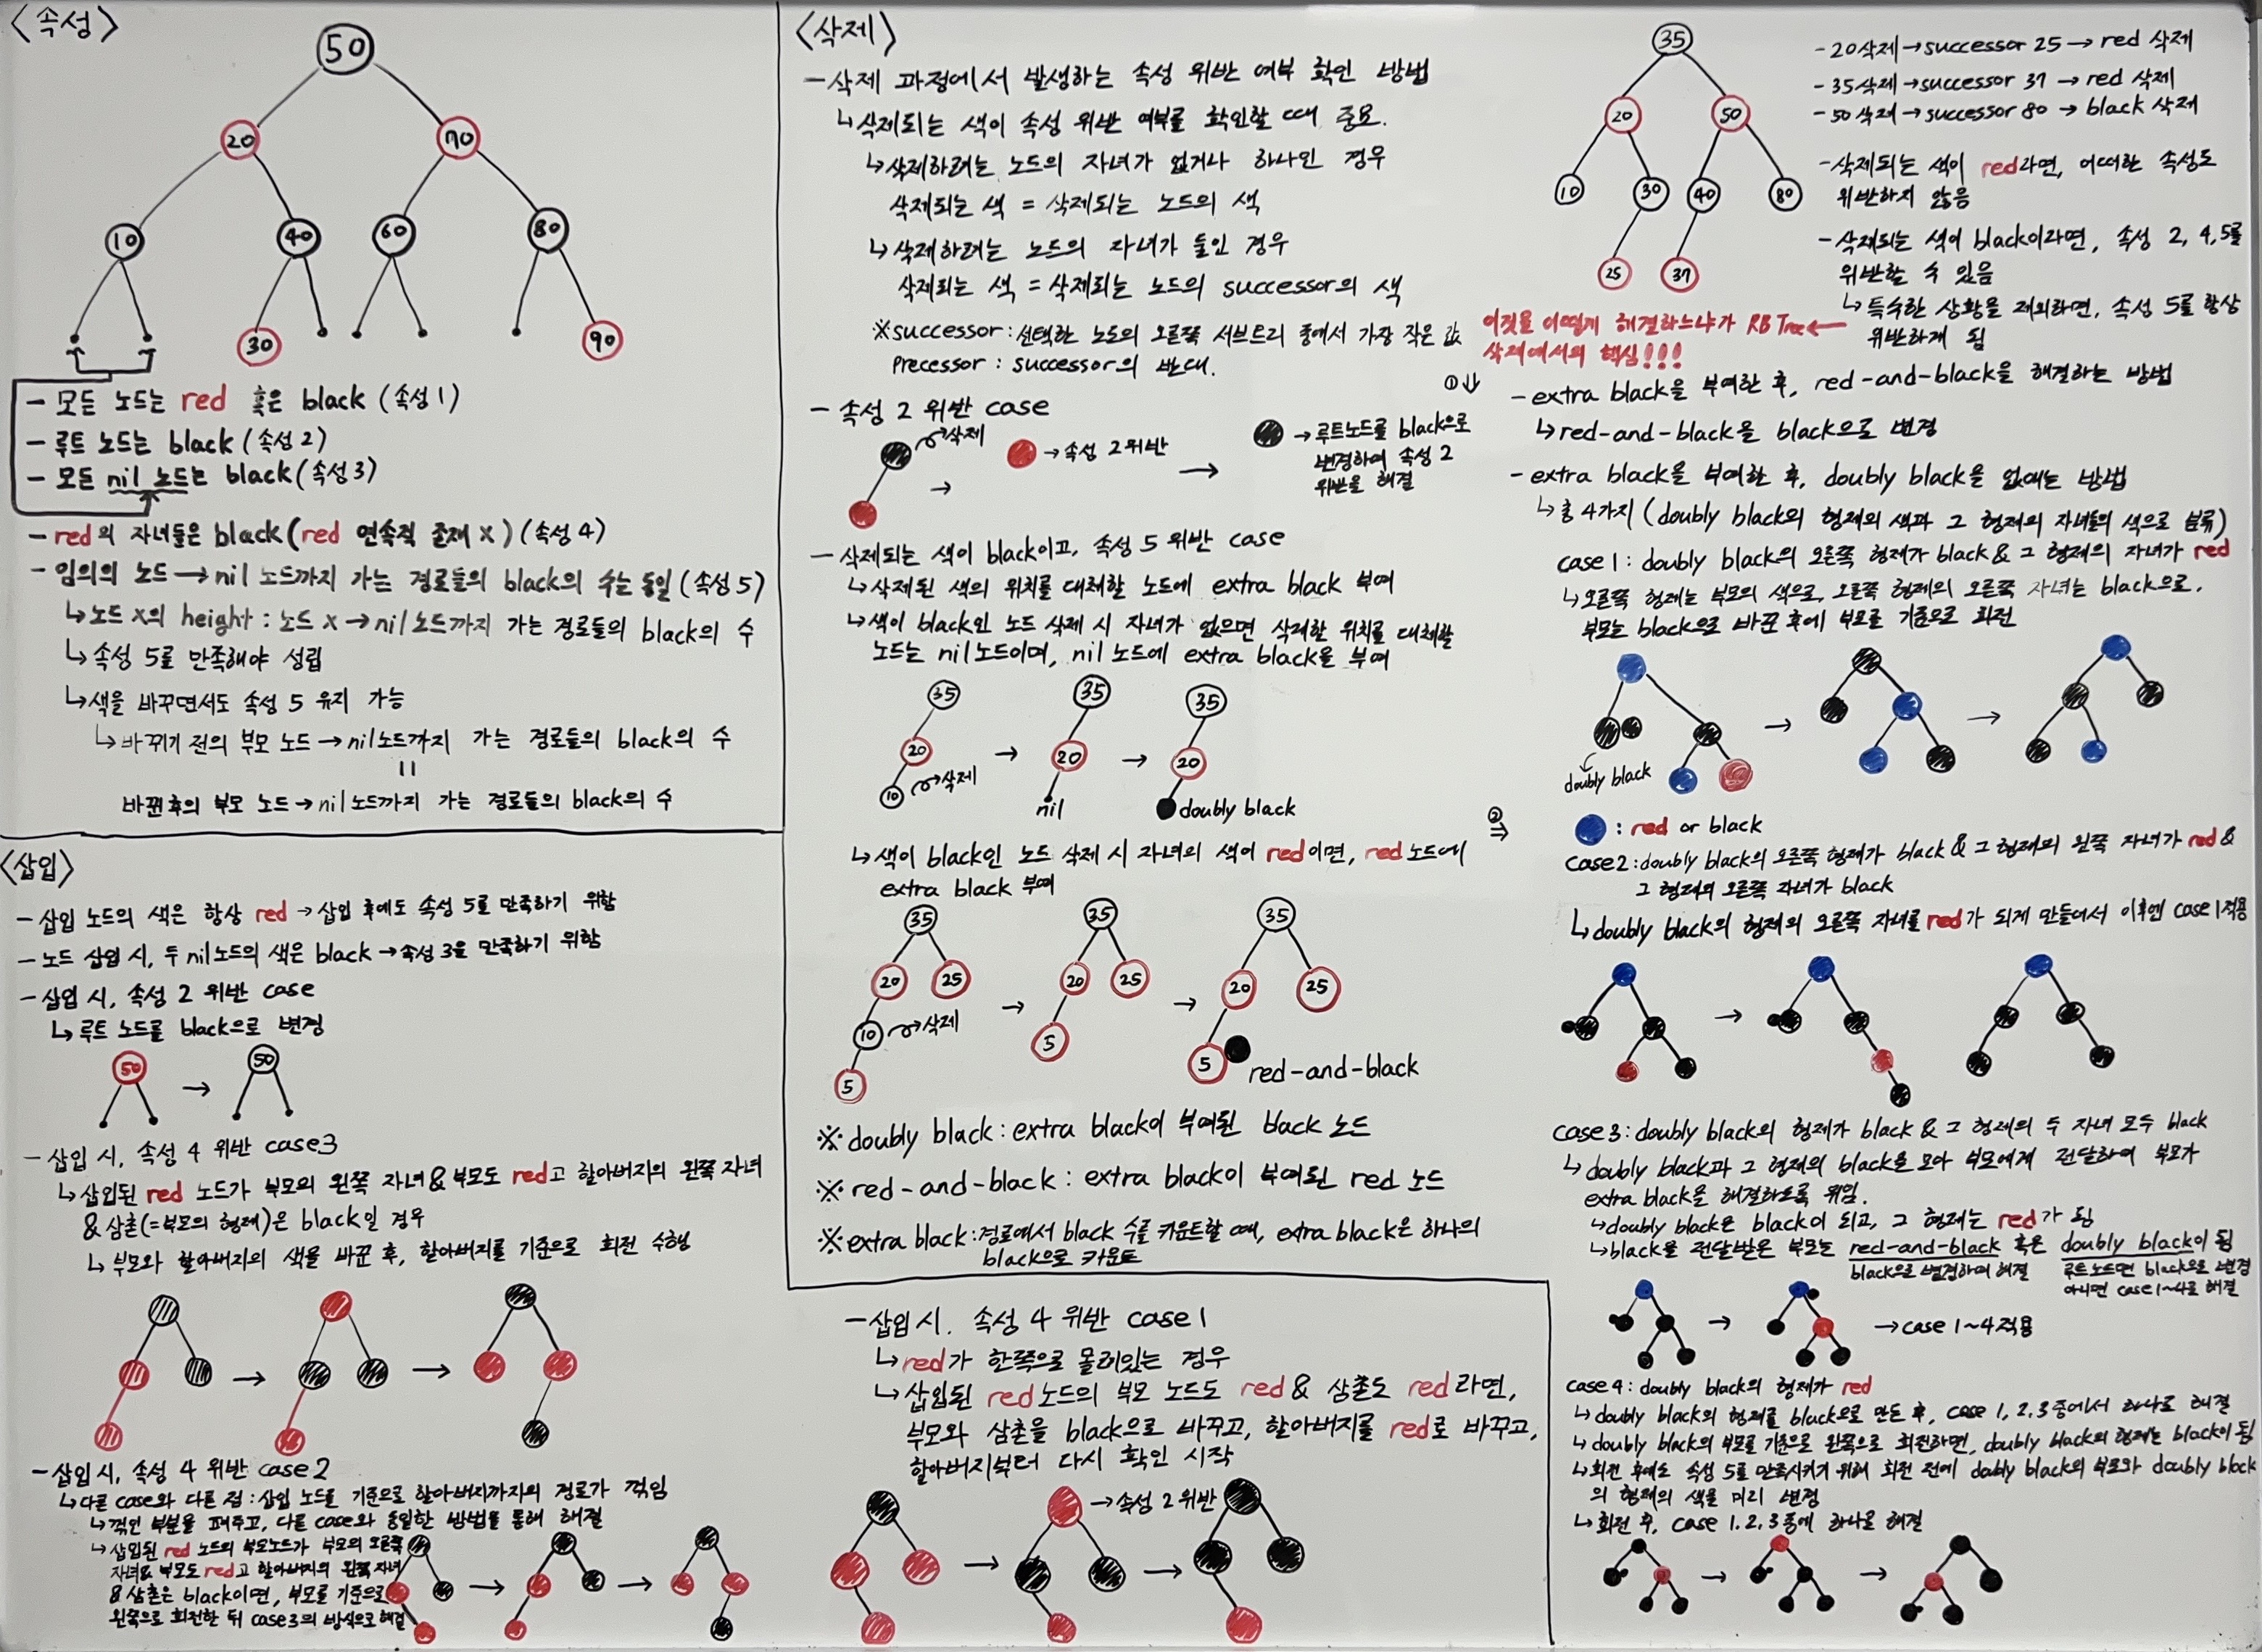 <속성>
50
20
70
10
40
60
80
30
90
- 모든 노드는 red 혹은 black (속성 1)
- 루트 노드는 black (속성 2)
- 모든 nil 노드는 black (속성 3)
- red의 자녀들은 black (red 연속적 존재 X) (속성 4)
- 임의의 노드 → nil 노드까지 가는 경로들의 black의 수는 동일 (속성 5)
↳ 노드 X의 height : 노드 X → nil 노드까지 가는 경로들의 black의 수
↳ 속성 5를 만족해야 성립
↳ 색을 바꾸면서도 속성 5 유지 가능
↳ 바뀌기 전의 부모 노드 → nil노드까지 가는 경로들의 black의 수
=
바뀐 후의 부모 노드 → nil노드까지 가는 경로들의 black의 수
<삽입>
- 삽입 노드의 색은 항상 red → 삽입 후에도 속성 5를 만족하기 위함
- 노드 삽입 시, 두 nil노드의 색은 black → 속성 3을 만족하기 위함
- 삽입 시, 속성 2 위반 case
↳ 루트 노드를 black으로 변경
50 → 50
- 삽입 시, 속성 4 위반 case3
↳ 삽입된 red 노드가 부모의 왼쪽 자녀 & 부모도 red고 할아버지의 왼쪽 자녀
& 삼촌(=부모의 형제)은 black일 경우
↳ 부모와 할아버지의 색을 바꾼 후, 할아버지를 기준으로 회전 수행
→ →
- 삽입 시, 속성 4 위반 case2
↳ 다른 case와 다른 점 : 삽입 노드를 기준으로 할아버지까지의 경로가 꺾임
↳ 꺾인 부분을 펴주고, 다른 case와 동일한 방법을 통해 해결
↳ 삽입된 red 노드의 부모노드가 부모의 오른쪽
자녀 & 부모도 red고 할아버지의 왼쪽 자녀
& 삼촌은 black이면, 부모를 기준으로
왼쪽으로 회전한 뒤 case3의 방식으로 해결
→ →
<삭제>
- 삭제 과정에서 발생하는 속성 위반 여부 확인 방법
↳ 삭제되는 색이 속성 위반 여부를 확인할 때 중요.
↳ 삭제하려는 노드의 자녀가 없거나 하나인 경우
삭제되는 색 = 삭제되는 노드의 색
↳ 삭제하려는 노드의 자녀가 둘인 경우
삭제되는 색 = 삭제되는 노드의 successor의 색
※ successor : 선택한 노드의 오른쪽 서브트리 중에서 가장 작은 값
precessor : successor의 반대.
- 속성 2 위반 case
삭제
→
→ 속성 2 위반
→
→ 루트노드를 black으로
변경하여 속성 2
위반을 해결
- 삭제되는 색이 black이고, 속성 5 위반 case
↳ 삭제된 색의 위치를 대체할 노드에 extra black 부여
↳ 색이 black인 노드 삭제 시 자녀가 없으면 삭제할 위치를 대체할
노드는 nil노드이며, nil 노드에 extra black을 부여
35 35 35
20 → 20 → 20
10 삭제 nil doubly black
↳ 색이 black인 노드 삭제 시 자녀의 색이 red이면, red 노드에
extra black 부여
35 35 35
20 25 → 20 25 → 20 25
10 삭제
5 5 5
red-and-black
※ doubly black : extra black이 부여된 black 노드
※ red-and-black : extra black이 부여된 red 노드
※ extra black : 경로에서 black 수를 카운트할 때, extra black은 하나의
black으로 카운트
- 삽입 시, 속성 4 위반 case1
↳ red가 한쪽으로 몰려있는 경우
↳ 삽입된 red노드의 부모 노드도 red & 삼촌도 red 라면,
부모와 삼촌을 black으로 바꾸고, 할아버지를 red로 바꾸고,
할아버지부터 다시 확인 시작
→ 속성 2 위반
→ →
35
20
50
10
30
40
80
25
37
- 20삭제 → successor 25 → red 삭제
- 35삭제 → successor 37 → red 삭제
- 50삭제 → successor 80 → black 삭제
- 삭제되는 색이 red라면, 어떠한 속성도
위반하지 않음
- 삭제되는 색이 black이라면, 속성 2, 4, 5를
위반할 수 있음
↳ 특수한 상황을 제외하면, 속성 5를 항상
위반하게 됨
이것을 어떻게 해결하느냐가 RB Tree ←
삭제에서의 핵심!!!
① ⇓
- extra black을 부여한 후, red-and-black을 해결하는 방법
↳ red-and-black을 black으로 변경
- extra black을 부여한 후, doubly black을 없애는 방법
↳ 총 4가지 (doubly black의 형제의 색과 그 형제의 자녀들의 색으로 분류)
case1 : doubly black의 오른쪽 형제가 black & 그 형제의 자녀가 red
↳ 오른쪽 형제는 부모의 색으로, 오른쪽 형제의 오른쪽 자녀는 black으로.
부모는 black으로 바꾼 후에 부모를 기준으로 회전
→ →
doubly black
② ⇒
: red or black
case2 : doubly black의 오른쪽 형제가 black & 그 형제의 왼쪽 자녀가 red &
그 형제의 오른쪽 자녀가 black
↳ doubly black의 형제의 오른쪽 자녀를 red가 되게 만들어서 이후엔 case1적용
→ →
case3 : doubly black의 형제가 black & 그 형제의 두 자녀 모두 black
↳ doubly black과 그 형제의 black을 모아 부모에게 전달하여 부모가
extra black을 해결하도록 위임.
↳ doubly black은 black이 되고, 그 형제는 red가 됨
↳ black을 전달받은 부모는 red-and-black 혹은 doubly black이 됨
black으로 변경하여 해결 루트노드면 black으로 변경
아니면 case1~4로 해결
→ → case 1~4 적용
case4 : doubly black의 형제가 red
↳ doubly black의 형제를 black으로 만든 후, case 1, 2, 3 중에서 하나로 해결
↳ doubly black의 부모를 기준으로 왼쪽으로 회전하면, doubly black의 형제는 black이 됨
↳ 회전 후에도 속성 5를 만족시키기 위해 회전 전에 doubly black의 부모와 doubly black
의 형제의 색을 미리 변경
↳ 회전 후, case 1, 2, 3 중에 하나로 해결
→ →